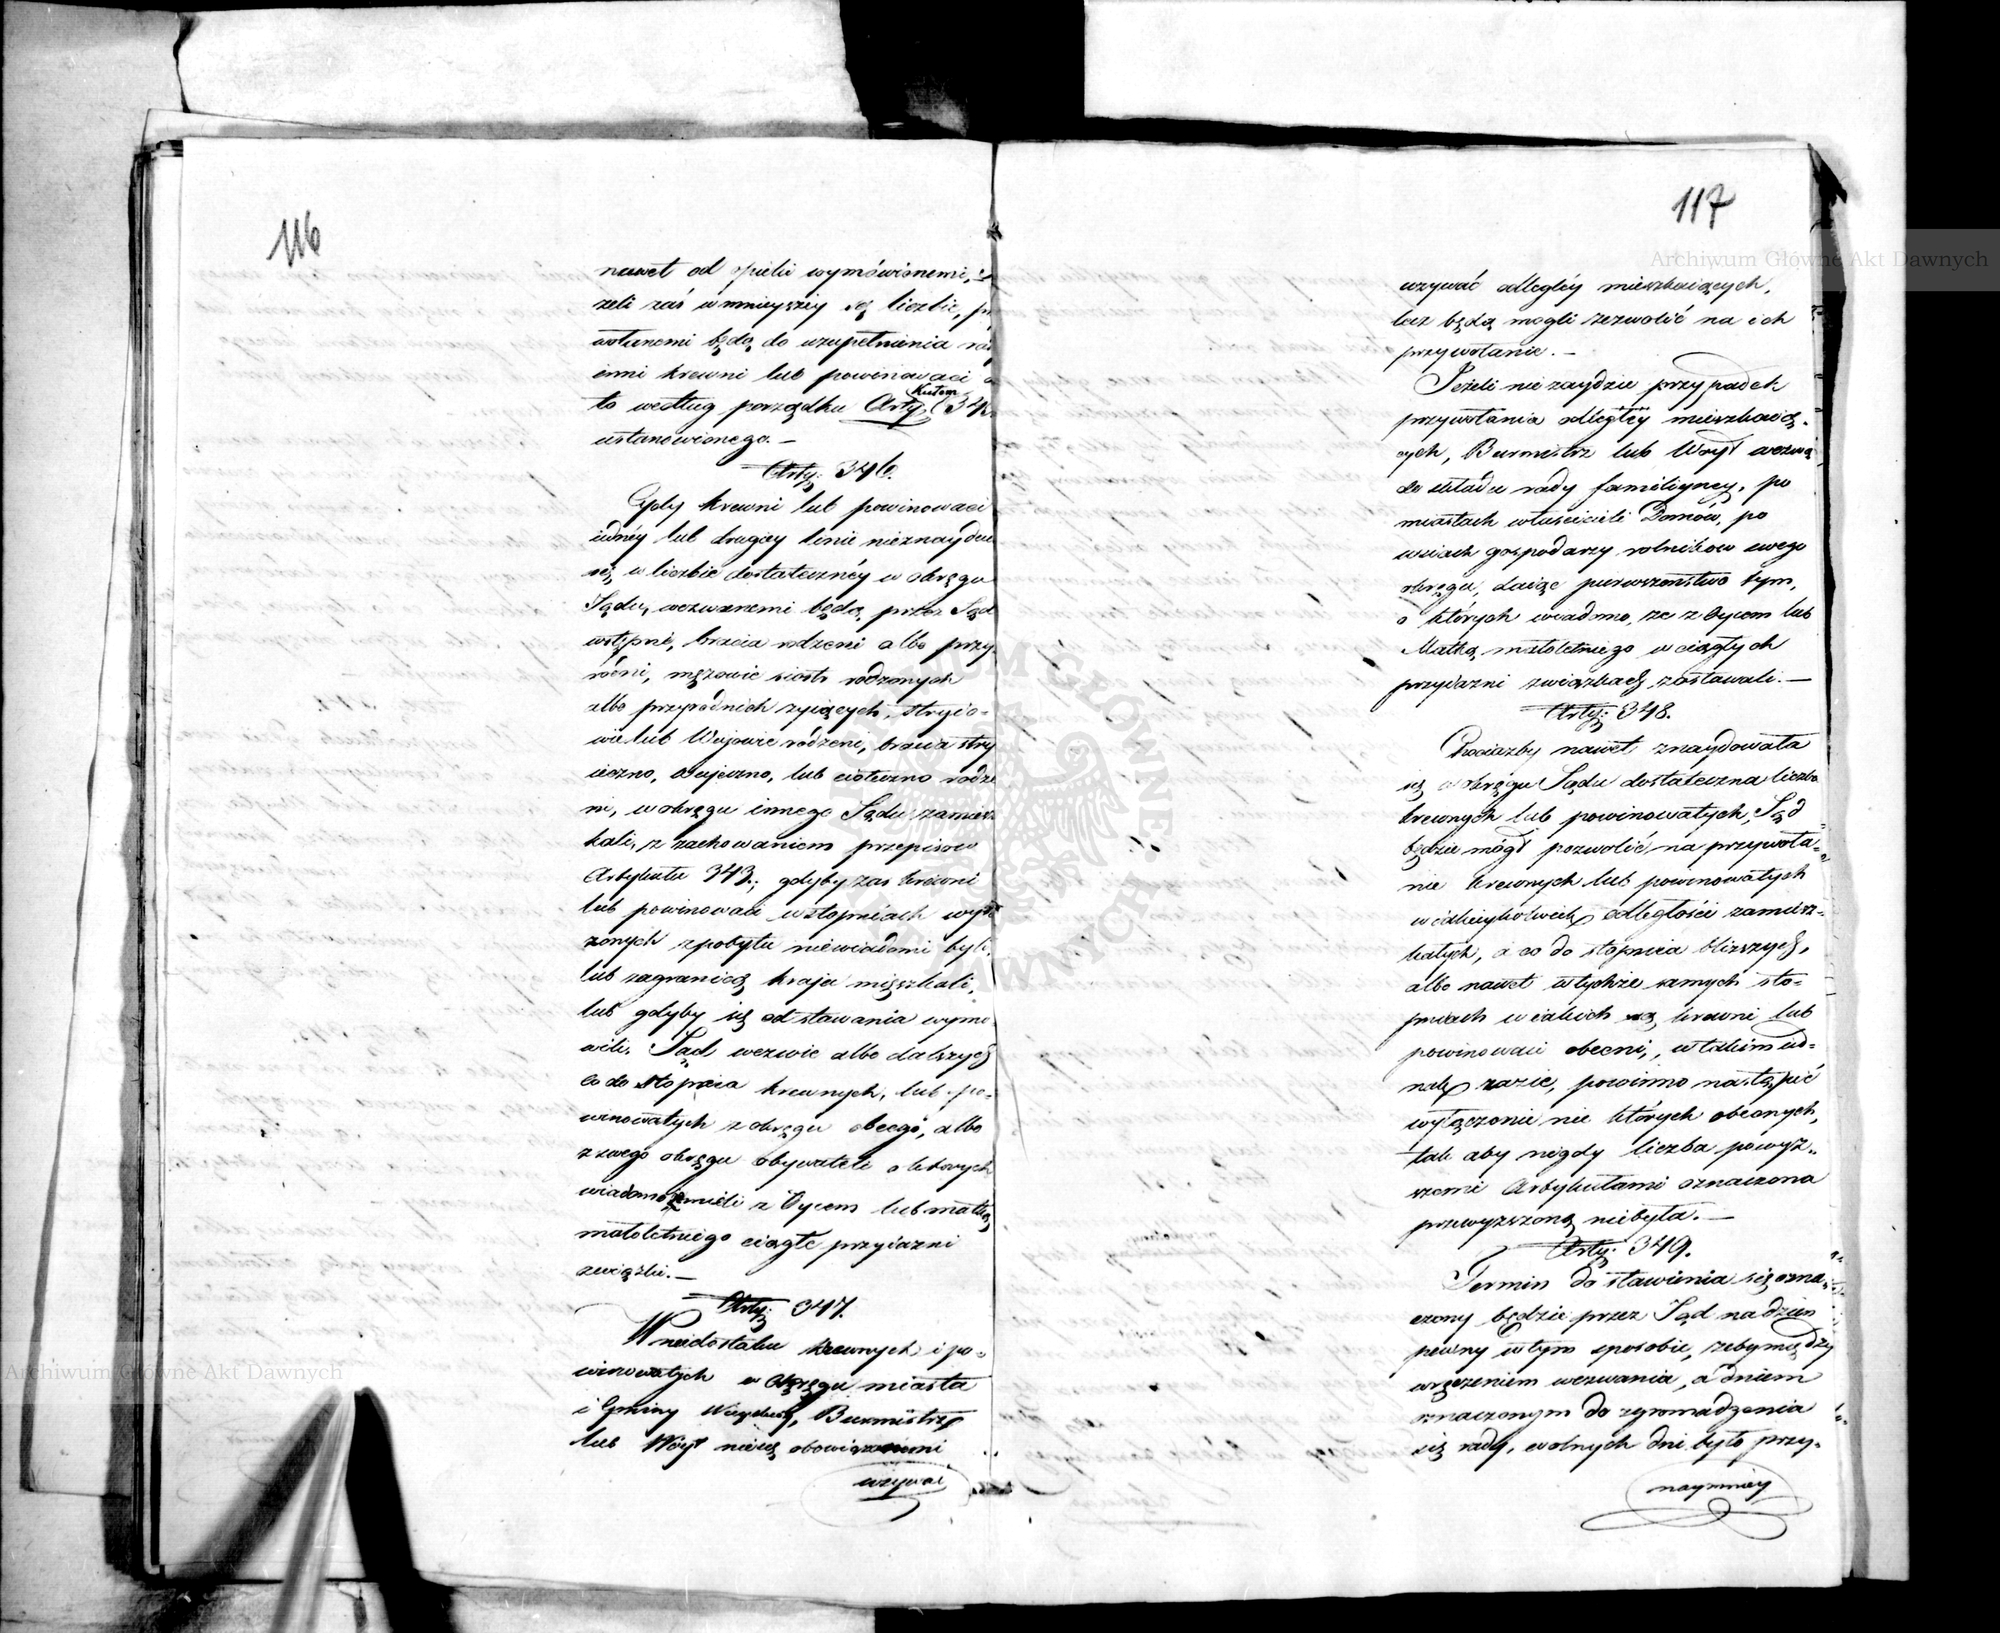 116
nawet od opieki wymówionemi, Je
żeli zaś w mnieyszey są liczbie, p
wołanemi będą do uzupełnienia ra
inni krewni lub powinowaci a
to według porządku Arty kułem 34
ustanowionego. —
Arty: 346.
Gdyby krewni lub powinowaci
iednéy lub drugiey linii nieznaydow
się w liczbie dostatecznéy w okręgu
Sądu, wezwanemi będą, przez Sąd
wstępni, bracia rodzeni albo przy
rodni, mężowie siostr rodzonych
albo przyrodnich żyiących, stryio-
wie lub Wujowie rodzeni, bracia stry
ieczno, wujeczno, lub cioteczno rodze
ni, w okręgu innego Sądu zamiesz
kali, z zachowaniem przepisow
Artykułu 343.; gdyby zaś krewni
lub powinowaci w stopniach wyż
zonych z pobytu niewiadomi byli,
lub zagranicą kraju mięszkali,
lub gdyby się od stawania wymó
wili, Sąd wezwie albo dalszych
co do stopnia krewnych, lub po-
winowatych z okręgu obcego, albo
z swego okręgu obywateli o których
wiadomo że mieli z Oycem lub matką
małoletniego ciągłe przyiazni
związki. —
Arty: 347.
W niedostatku krewnych i po-
winowatych w okręgu miasta
i Gminy Wieyskiey, Burmistrz
lub Wóyt nie są obowiązanemi
wzywać
117
wzywać odlegléy mieszkaiących,
lecz będą mogli zezwolić na ich
przywołanie. —
Jeżeli nie zaydzie przypadek
przywołania odległéy mieszkaią-
cych, Burmistrz lub Woyt wezwą
do składu rady familiyney, po
miastach właścicieli Domów, po
wsiach gospodarzy rolników swego
okręgu, daiąc pierwszeństwo tym,
o których wiadomo, że z Oycem lub
Matką małoletniego w ciągłych
przyiazni związkach zostawali. —
Arty: 348.
Chociażby nawet znaydowała
się w okręgu Sądu dostateczna liczba
krewnych lub powinowatych, Sąd
będzie mógł pozwolić na przywoła-
nie krewnych lub powinowatych
w iakieykolwiek odległości zamiesz-
kałych, a co do stopnia bliższych,
albo nawet w tychże samych sto-
pniach w iakich są, krewni lub
powinowaci obecni, w takim ied-
nak razie, powinno nastąpić
wyłączenie nie których obecnych,
tak aby nigdy liczba powyż-
szemi Artykułami oznaczona
przewyższoną niebyła. —
Arty: 349.
Termin do stawienia się ozna-
czony będzie przez Sąd na dzień
pewny w tym sposobie, żeby między
wręczeniem wezwania, a dniem
oznaczonym do zgromadzenia
się rady, wolnych dni było przy-
naymniey
Archiwum Główne Akt Dawnych
Archiwum Główne Akt Dawnych